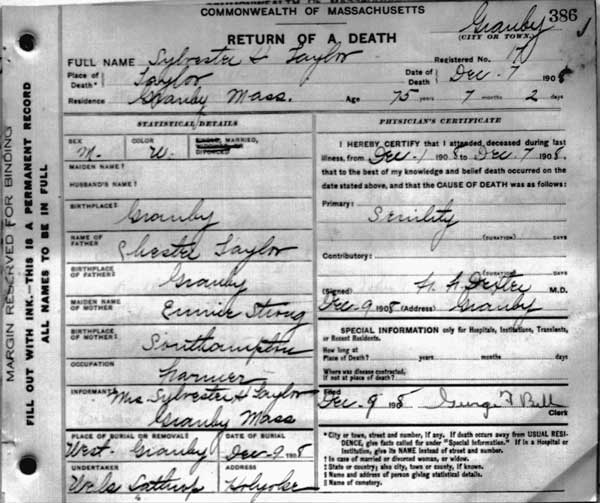 COMMONWEALTH OF MASSACHUSETTS
COMMONWEALTH OF MASSACHUSETTS
RETURN OF A DEATH
Granby 386
(CITY OR TOWN.)
FULL NAME Sylvester H Taylor Registered No. 17
Place of Death* Taylor Date of Death Dec. 7 1908
Residence Granby Mass. Age 75 years 7 months 2 days
MARGIN RESERVED FOR BINDING
FILL OUT WITH INK.—THIS IS A PERMANENT RECORD
ALL NAMES TO BE IN FULL
STATISTICAL DETAILS
SEX M. COLOR W. SINGLE, MARRIED, WIDOWED, DIVORCED
MAIDEN NAME†
HUSBAND'S NAME†
BIRTHPLACE‡ Granby
NAME OF FATHER Chester Taylor
BIRTHPLACE OF FATHER‡ Granby
MAIDEN NAME OF MOTHER Eunice Strong
BIRTHPLACE OF MOTHER‡ Southampton
OCCUPATION Farmer
INFORMANT§ Mrs. Sylvester H Taylor
Granby Mass
PLACE OF BURIAL OR REMOVAL‖ DATE OF BURIAL
West Granby Dec-9 1908
UNDERTAKER ADDRESS
Lathrop Holyoke
PHYSICIAN'S CERTIFICATE
I HEREBY CERTIFY that I attended deceased during last
illness, from Dec. 1 1908 to Dec 7 1908,
that to the best of my knowledge and belief death occurred on the
date stated above, and that the CAUSE OF DEATH was as follows:
Primary: Senility
(DURATION) DAYS
Contributory:
(DURATION) DAYS
(Signed) Dexter M.D.
Dec-9 1908 (Address) Granby
SPECIAL INFORMATION only for Hospitals, Institutions, Transients,
or Recent Residents.
How long at
Place of Death? years months days
Where was disease contracted,
if not at place of death?
Filed
Dec-9 1908 George F Bell
Clerk
*City or town, street and number, if any. If death occurs away from USUAL RESI-
DENCE, give facts called for under "Special Information." If in a Hospital or
Institution, give its NAME instead of street and number.
† In case of married or divorced woman, or widow.
‡ State or country; also city, town or county, if known.
§ Name and address of person giving statistical details.
‖ Name of cemetery.